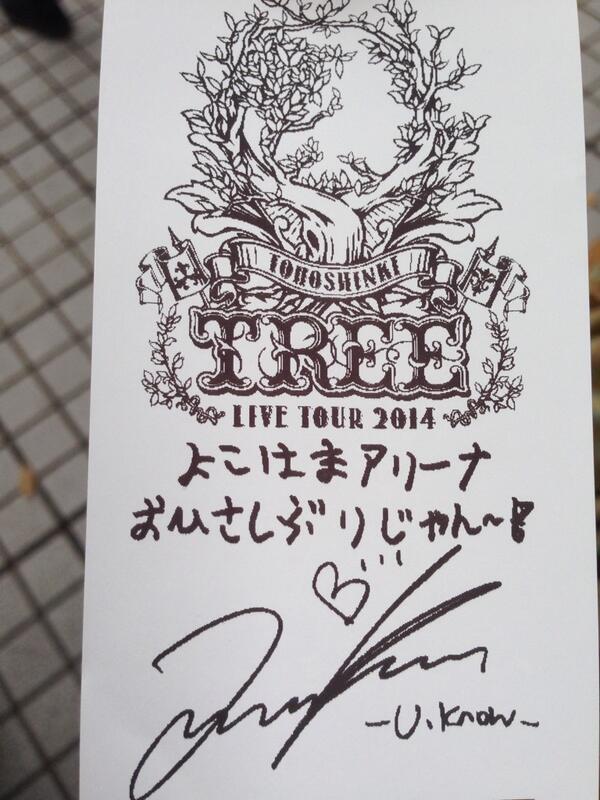 TOHOSHINKI
TREE
LIVE TOUR 2014
よこはまアリーナ
おひさしぶりじゃん〜!
-U.Know-